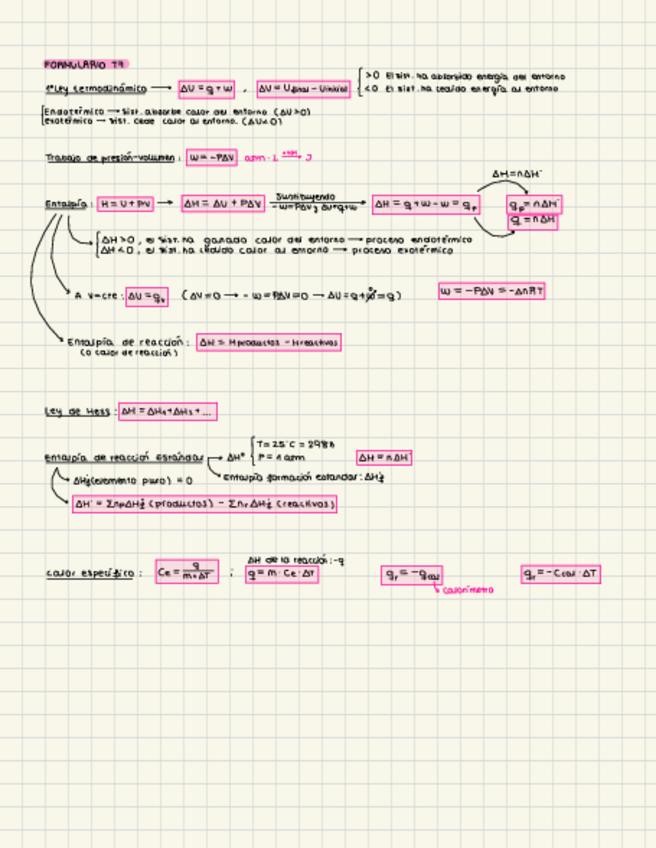 FORMULARIO T9
1ª Ley termodinámica → ΔU = q + w , ΔU = Ufinal - Uinicial { >0 El sist. ha absorbido energía del entorno
<0 El sist. ha cedido energía al entorno
[Endotérmico → sist. absorbe calor del entorno (ΔU>0)
exotérmico → sist. cede calor al entorno. (ΔU<0)
Trabajo de presión-volumen: w = -PΔV atm·L → J
ΔH=nΔH°
Entalpía: H = U + PV → ΔH = ΔU + PΔV Sustituyendo -w=PΔV y ΔU=q+w → ΔH = q + w - w = qp qp = nΔH°
q = nΔH
[ΔH>0, el sist. ha ganado calor del entorno → proceso endotérmico
ΔH<0, el sist. ha cedido calor al entorno → proceso exotérmico
A V=cte: ΔU = qv (ΔV=0 → -w=PΔV=0 → ΔU=q+w=q) w = -PΔV = -ΔnRT
Entalpía de reacción: ΔH = Hproductos - Hreactivos
(o calor de reacción)
Ley de Hess: ΔH = ΔH1+ΔH2+...
Entalpía de reacción estándar → ΔH° [T=25°C = 298k
P = 1 atm ΔH = nΔH°
Entalpía formación estandar: ΔHf°
ΔHf°(elemento puro) = 0
ΔH° = ΣnpΔHf° (productos) - ΣnrΔHf° (reactivos)
ΔH de la reacción: -q
calor específico: Ce = q/m·ΔT ; q = m·Ce·ΔT qr = -qcal qr = -Ccal·ΔT
calorímetro